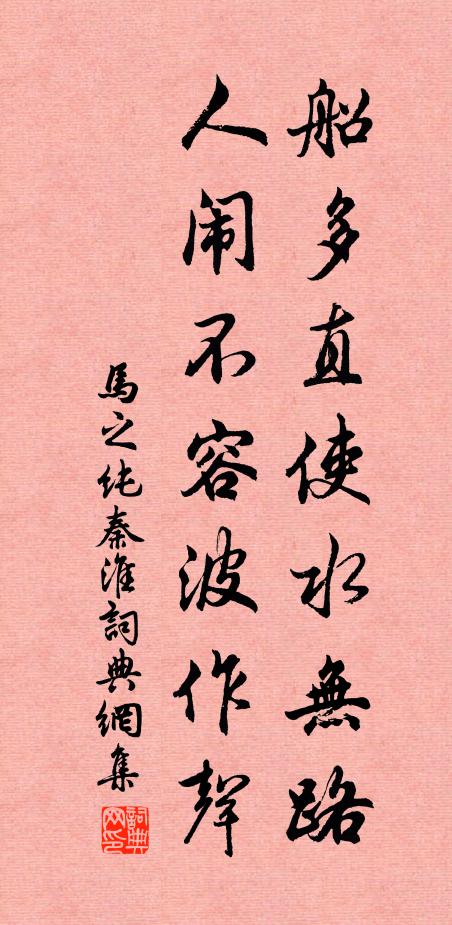 船多直使水無路
人闹不容波作聲
馬之纯秦淮詞典網集
詞典网印